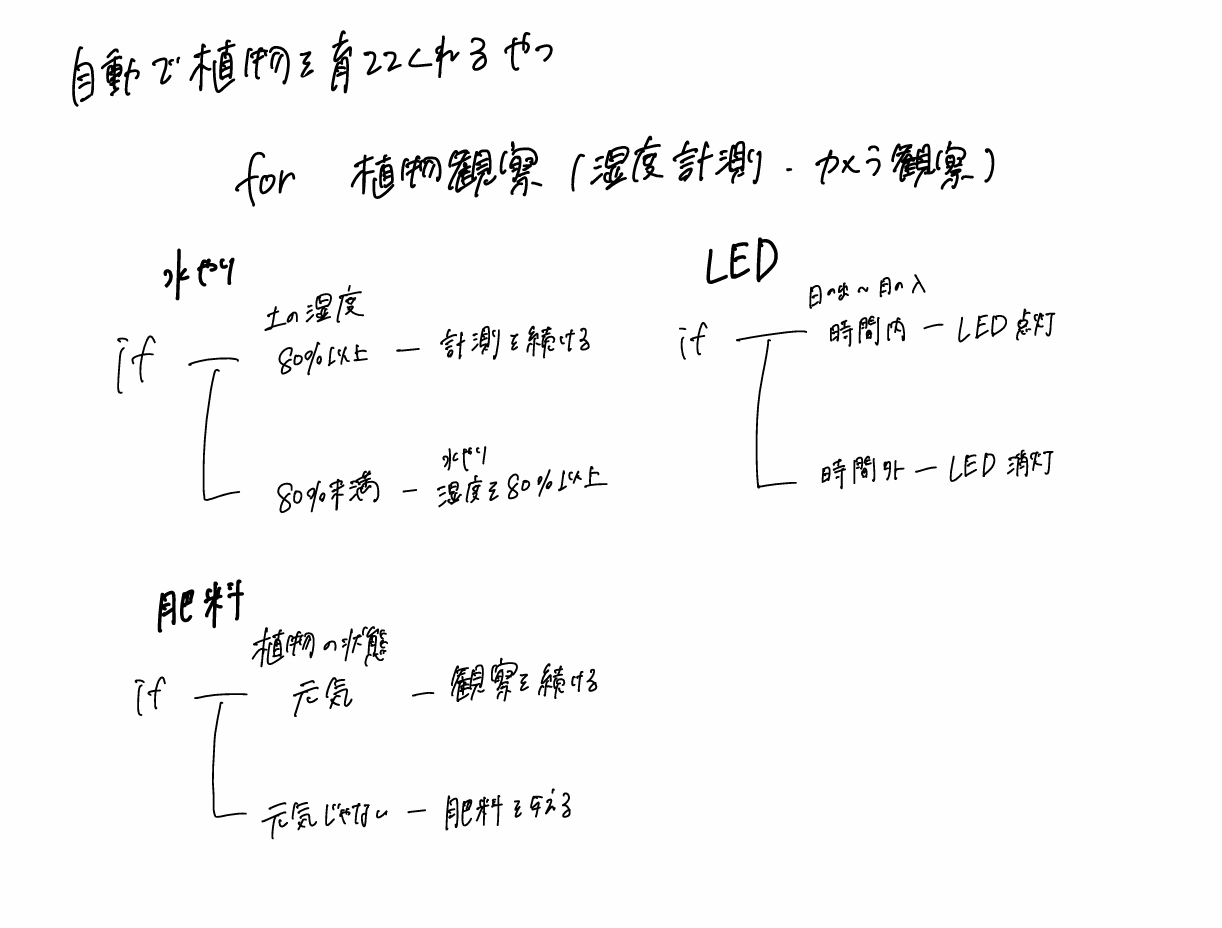 自動で植物を育ててくれるやつ
for 植物観察(湿度計測・カメラ観察)
水やり
土の湿度
if 80%以上 — 計測を続ける
水やり
80%未満 — 湿度を80%以上
LED
日の出〜日の入
if 時間内 — LED点灯
時間外 — LED消灯
肥料
植物の状態
if 元気 — 観察を続ける
元気じゃない — 肥料を与える